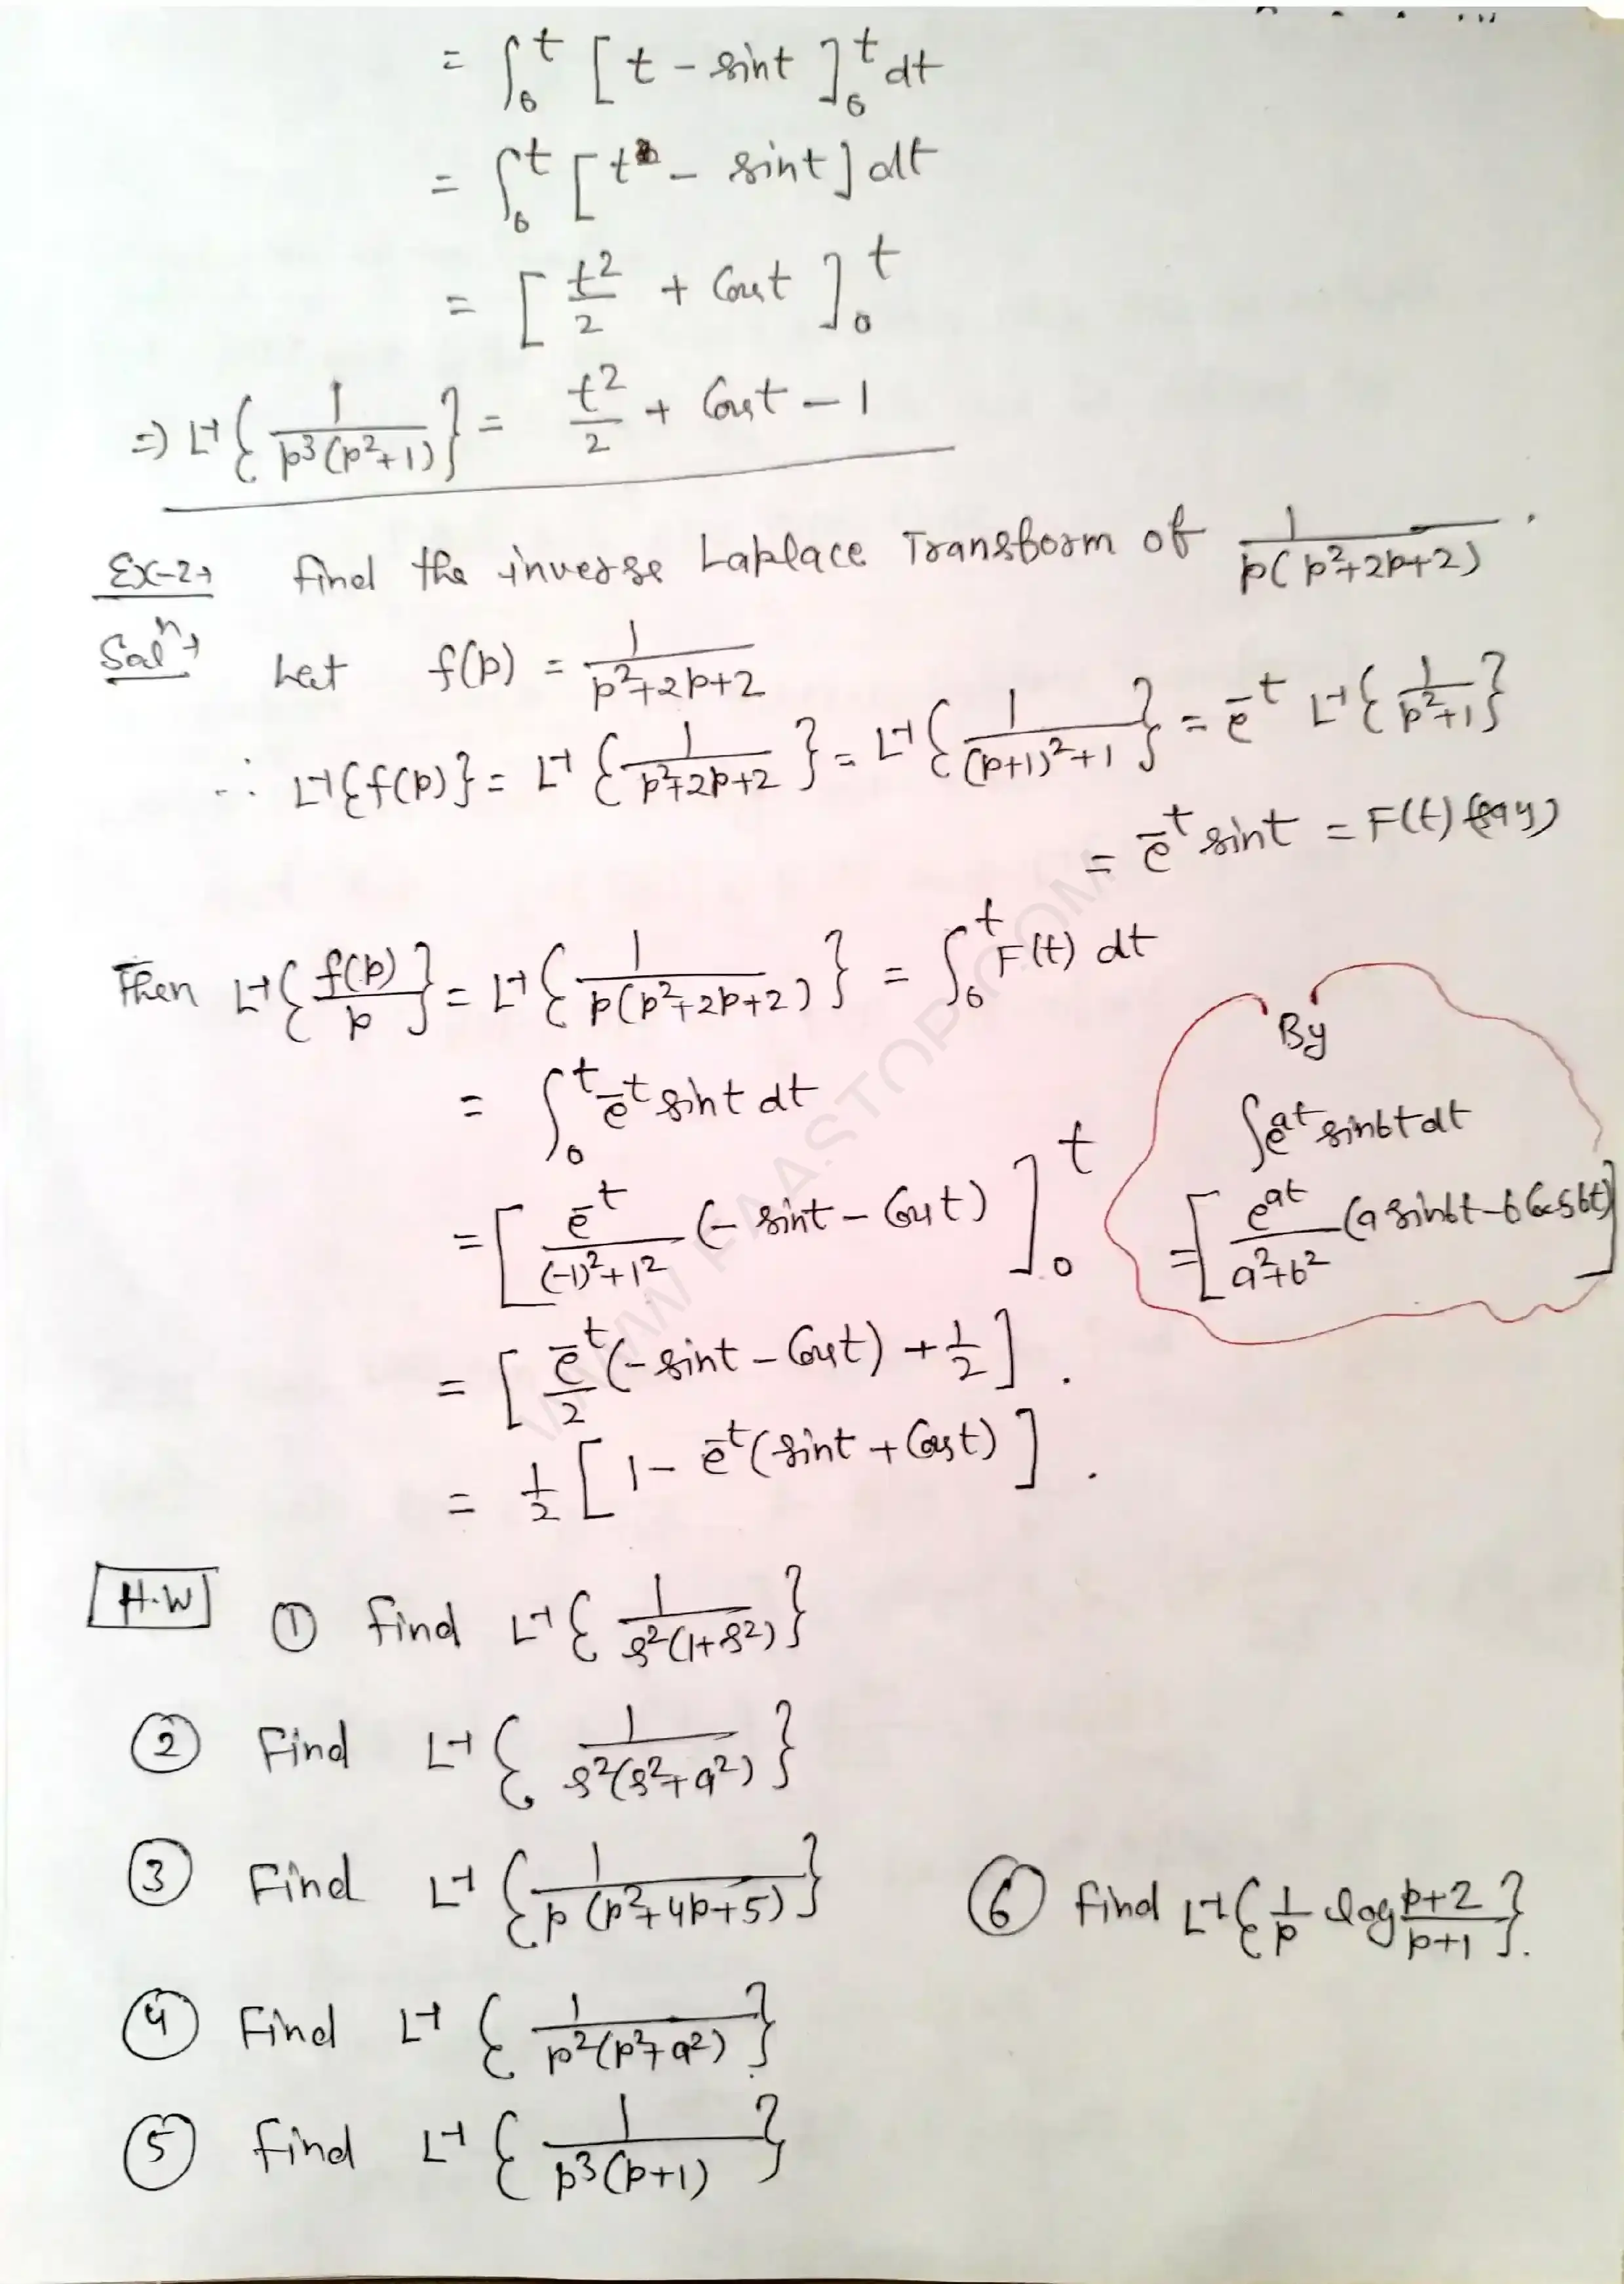 = ∫₀ᵗ [t - sint]₀ᵗ dt
= ∫₀ᵗ [t - sint] dt
= [t²/2 + Cost]₀ᵗ
⇒ L⁻¹{1/(p³(p²+1))} = t²/2 + Cost - 1
Ex-2→ Find the inverse Laplace Transform of 1/(p(p²+2p+2)).
Solⁿ→ Let f(p) = 1/(p²+2p+2)
∴ L⁻¹{f(p)} = L⁻¹{1/(p²+2p+2)} = L⁻¹{1/((p+1)²+1)} = e⁻ᵗ L⁻¹{1/(p²+1)}
= e⁻ᵗ sint = F(t) (say)
Then L⁻¹{f(p)/p} = L⁻¹{1/(p(p²+2p+2))} = ∫₀ᵗ F(t) dt
= ∫₀ᵗ e⁻ᵗ sint dt
= [e⁻ᵗ/((-1)²+1²) (- sint - Cost)]₀ᵗ
By
∫eᵃᵗ sinbt dt
= [eᵃᵗ/(a²+b²) (a sinbt - b Cosbt)]
= [e⁻ᵗ/2 (- sint - Cost) + 1/2].
= 1/2 [1 - e⁻ᵗ(sint + Cost)].
H.W ① Find L⁻¹{1/(s²(1+s²))}
② Find L⁻¹{1/(s²(s²+a²))}
③ Find L⁻¹{1/(p(p²+4p+5))}
④ Find L⁻¹{1/(p²(p²+a²))}
⑤ Find L⁻¹{1/(p³(p+1))}
⑥ Find L⁻¹{1/p log (p+2)/(p+1)}.